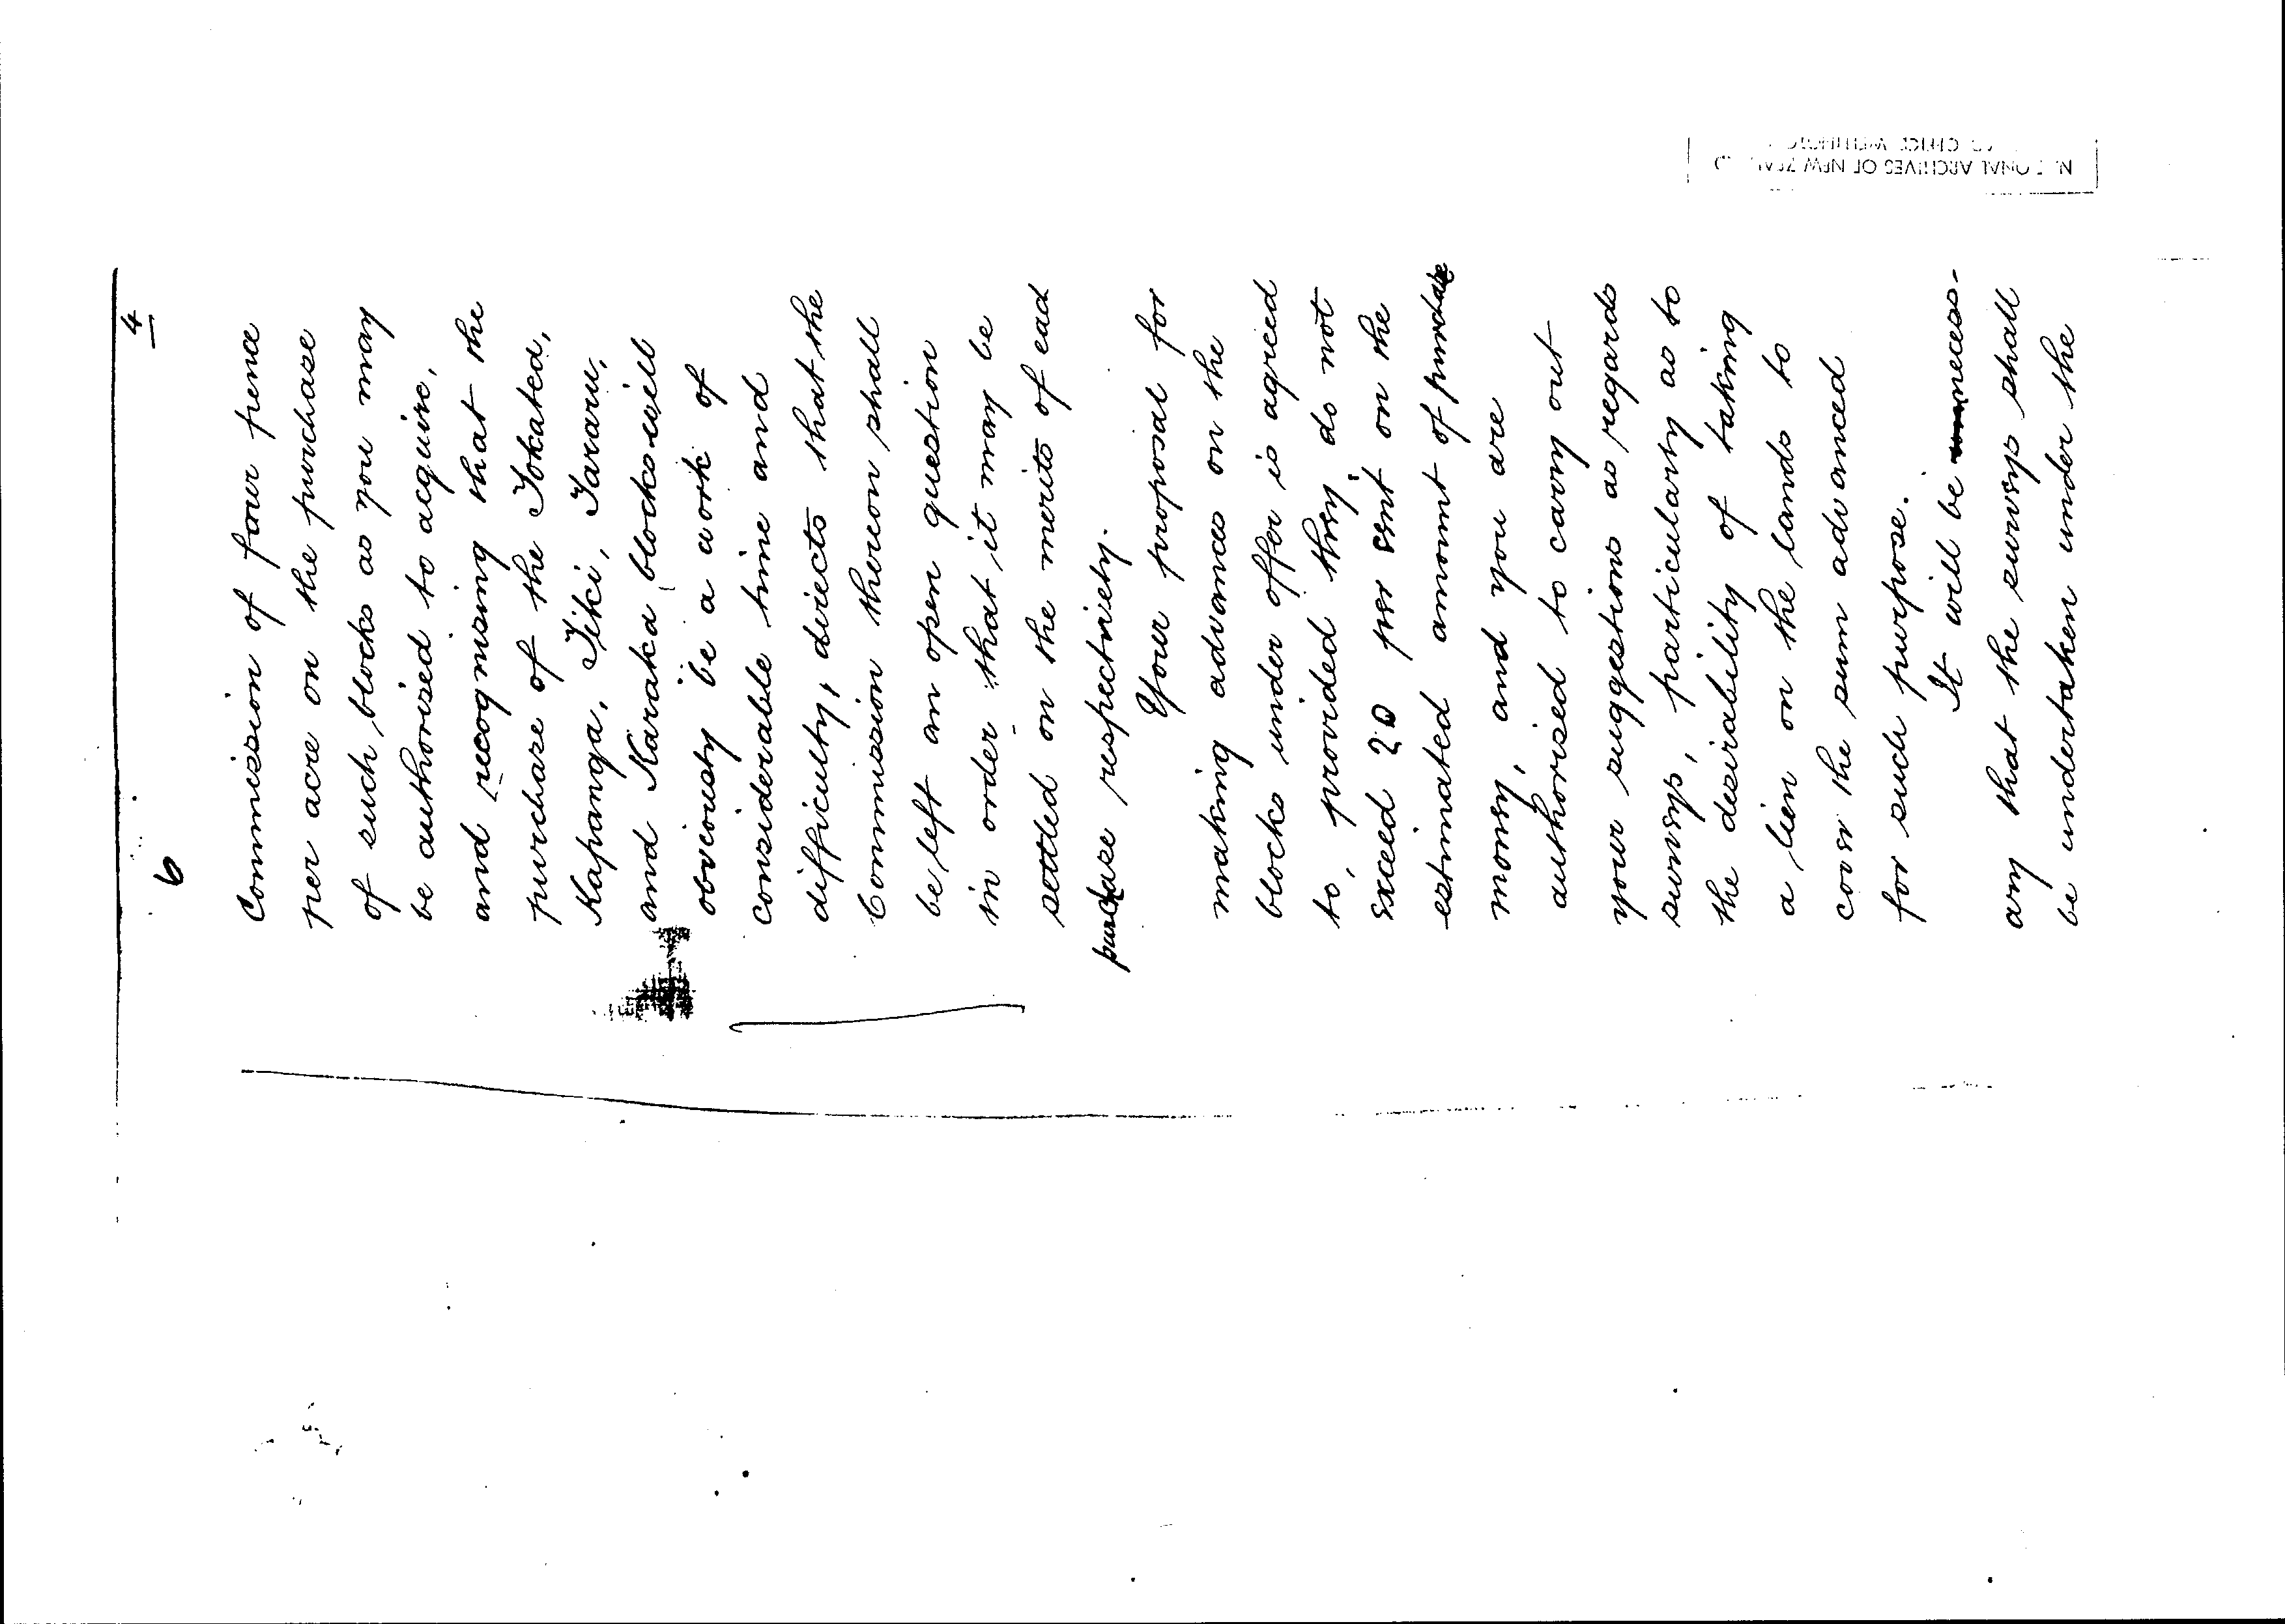 4
6
Commission of four pence
per acre on the purchase
of such blocks as you may
be authorised to acquire,
and recognising that the
purchase of the Tokatea,
Kapanga, Tiki, Tararu,
and Karaka blocks will
obviously be a work of
considerable time and
difficulty, directs that the
Commission thereon shall
be left an open question
in order that it may be
settled on the merits of each
purchase respectively.
Your proposal for
making advances on the
blocks under offer is agreed
to, provided they do not
exceed 20 per cent on the
estimated amount of purchase
money, and you are
authorised to carry out
your suggestions as regards
surveys, particularly as to
the desirability of taking
a lien on the lands to
cover the sum advanced
for such purpose.
It will be necess-
ary that the surveys shall
be undertaken under the
NATIONAL ARCHIVES OF NEW ZEALAND
OFFICE WELLINGTON